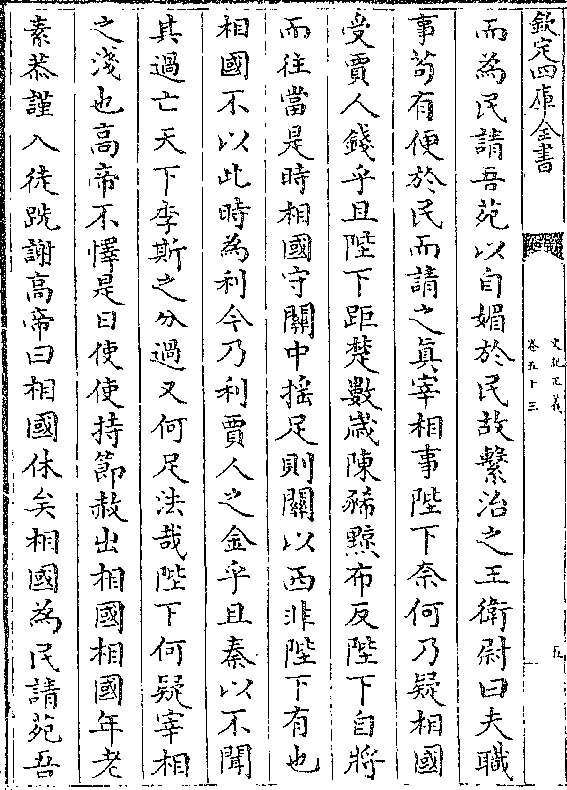 欽定四庫全書
史記正義
卷五十三
五
而為民請吾苑以自媚於民故繫治之王衛尉曰夫職
事茍有便於民而請之真宰相事陛下奈何乃疑相國
受賈人錢乎且陛下距楚數歲陳豨黥布反陛下自將
而往當是時相國守關中揺足則關以西非陛下有也
相國不以此時為利今乃利賈人之金乎且秦以不聞
其過亡天下李斯之分過又何足法哉陛下何疑宰相
之淺也高帝不懌是日使使持節赦出相國相國年老
素恭謹入徒跣謝高帝曰相國休矣相國為民請苑吾